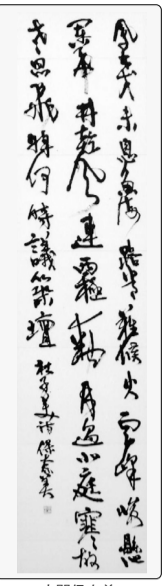 鳳林戈未息魚海路常難候火雲峰峻懸
軍幕井乾風連西極動月過北庭寒故
老思飛將何時議築壇 杜子美詩 保奈美